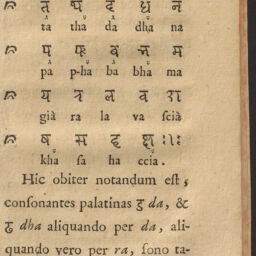 त थ द ध न
ta tha da dha na
प फ ब भ म
pa p-ha ba bha ma
य र ल व
già ra la va scià
ष स ह क्ष
kha ſa ha ccia.
Hic obiter notandum eſt,
conſonantes palatinas ड da, &
ढ dha aliquando per da, ali-
quando vero per ra, ſono ta-